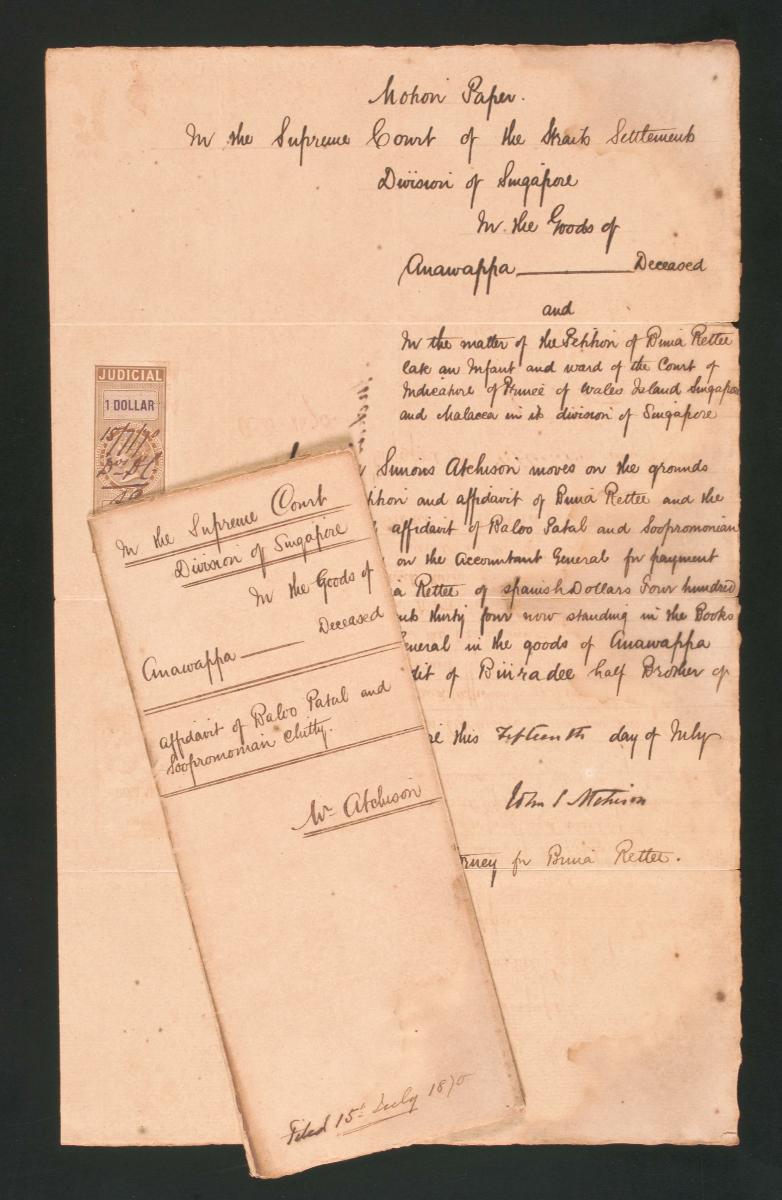 Motion Paper.
In the Supreme Court of the Straits Settlements
Division of Singapore
In the Goods of
Anawappa Deceased
and
In the matter of the Petition of Bima Rettee
late an Infant and ward of the Court of
Judicature of Prince of Wales Island Singapore
and Malacca in its division of Singapore
JUDICIAL
1 DOLLAR
15/7/70
Simons Atchison moves on the grounds
and affidavit of Bima Rettee and the
affidavit of Baloo Patal and Soopromonian
on the Accountant General for payment
Rettee of spanish Dollars Four hundred
thirty four now standing in the Books
in the goods of Anawappa
of Biniradee half Brother of
this Fifteenth day of July
John S Atchison
for Bima Rettee.
In the Supreme Court
Division of Singapore
In the Goods of
Anawappa Deceased
Affidavit of Baloo Patal and
Soopromonian Chitty.
Mr Atchison
Filed 15th July 1870